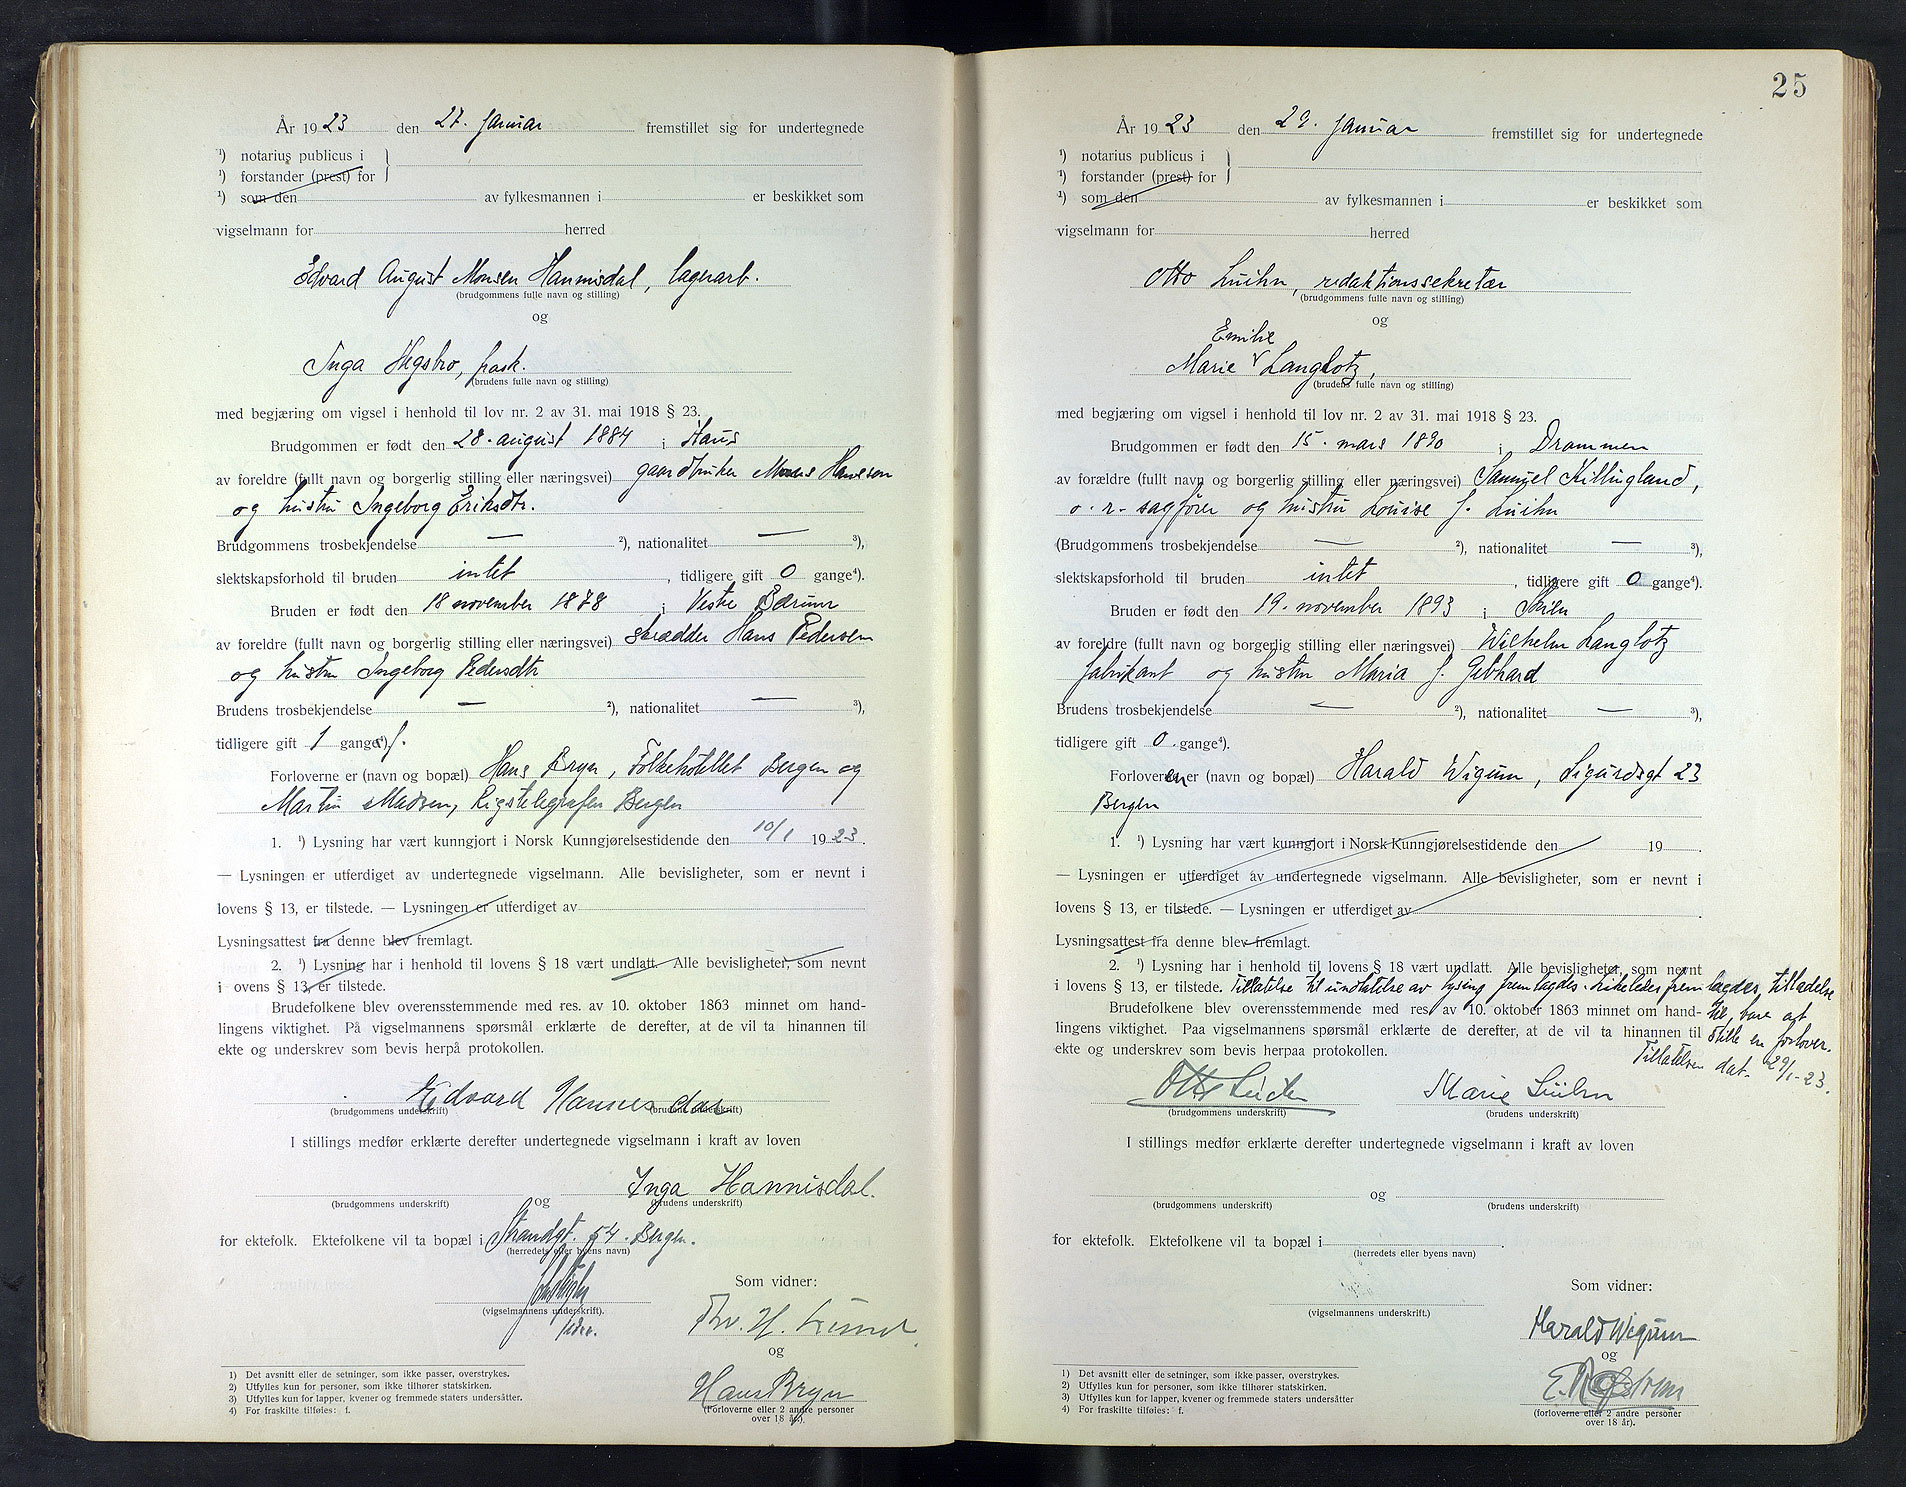 År 1923 den 27. januar fremstillet sig for undertegnede
¹) notarius publicus i
¹) forstander (prest) for
¹) som den av fylkesmannen i er beskikket som
vigselmann for herred
Edvard August Monsen Hannisdal, lagerarb.
(brudgommens fulle navn og stilling)
og
Inga Hegsbro, frask.
(brudens fulle navn og stilling)
med begjæring om vigsel i henhold til lov nr. 2 av 31. mai 1918 § 23.
Brudgommen er født den 28. august 1884 i Haus
av foreldre (fullt navn og borgerlig stilling eller næringsvei) gaardbruker Mons Hansen
og hustru Ingeborg Eriksdtr.
Brudgommens trosbekjendelse — ²), nationalitet — ³),
slektskapsforhold til bruden intet, tidligere gift 0 gange⁴).
Bruden er født den 18 november 1878 i Vestre Bærum
av foreldre (fullt navn og borgerlig stilling eller næringsvei) skrædder Hans Pedersen
og hustru Ingeborg Pedersdtr
Brudens trosbekjendelse — ²), nationalitet — ³),
tidligere gift 1 gange⁴) f.
Forloverne er (navn og bopæl) Hans Bryn, Folkehotellet Bergen og
Martin Madsen, Rigstelegrafen Bergen
1. ¹) Lysning har vært kunngjort i Norsk Kunngjørelsestidende den 10/1 1923.
— Lysningen er utferdiget av undertegnede vigselmann. Alle bevisligheter, som er nevnt i
lovens § 13, er tilstede. — Lysningen er utferdiget av
Lysningsattest fra denne blev fremlagt.
2. ¹) Lysning har i henhold til lovens § 18 vært undlatt. Alle bevisligheter, som nevnt
i ovens § 13, er tilstede.
Brudefolkene blev overensstemmende med res. av 10. oktober 1863 minnet om hand-
lingens viktighet. På vigselmannens spørsmål erklærte de derefter, at de vil ta hinannen til
ekte og underskrev som bevis herpå protokollen.
Edvard Hannisdal
(brudgommens underskrift) (brudens underskrift)
I stillings medfør erklærte derefter undertegnede vigselmann i kraft av loven
og Inga Hannisdal.
(brudgommens underskrift) (brudens underskrift)
for ektefolk. Ektefolkene vil ta bopæl i Strandgt. 54. Bergen.
(herredets eller byens navn)
Som vidner:
(vigselmannens underskrift).
Thv. H. Lund
og
Hans Bryn
(Forloverne eller 2 andre personer
over 18 år).
1) Det avsnitt eller de setninger, som ikke passer, overstrykes.
2) Utfylles kun for personer, som ikke tilhører statskirken.
3) Utfylles kun for lapper, kvener og fremmede staters undersåtter.
4) For fraskilte tilføies: f.
25
År 1923 den 29. januar fremstillet sig for undertegnede
¹) notarius publicus i
¹) forstander (prest) for
¹) som den av fylkesmannen i er beskikket som
vigselmann for herred
Otto Luihn, redaktionssekretær
(brudgommens fulle navn og stilling)
og
Emilie
Marie √ Langlotz,
(brudens fulle navn og stilling)
med begjæring om vigsel i henhold til lov nr. 2 av 31. mai 1918 § 23.
Brudgommen er født den 15. mars 1890 i Drammen
av forældre (fullt navn og borgerlig stilling eller næringsvei) Samuel Killingland,
o.r.sagfører og hustru Louise f. Luihn
(Brudgommens trosbekjendelse — ²), nationalitet — ³),
slektskapsforhold til bruden intet, tidligere gift 0 gange⁴).
Bruden er født den 19. november 1893 i Skien
av foreldre (fullt navn og borgerlig stilling eller næringsvei) Wilhelm Langlotz
fabrikant og hustru Maria f. Gebhard
Brudens trosbekjendelse — ²), nationalitet — ³),
tidligere gift 0 gange⁴).
Forloveren er (navn og bopæl) Harald Wigum, Sigurdsgt 23
Bergen
1. ¹) Lysning har vært kunngjort i Norsk Kunngjørelsestidende den 19 .
— Lysningen er utferdiget av undertegnede vigselmann. Alle bevisligheter, som er nevnt i
lovens § 13, er tilstede. — Lysningen er utferdiget av
Lysningsattest fra denne blev fremlagt.
2. ¹) Lysning har i henhold til lovens § 18 vært undlatt. Alle bevisligheter, som nevnt
i lovens § 13, er tilstede. Tillatelse til undlatelse av lysing fremlagdes. Likeledes fremlagdes tilladelse
Brudefolkene blev overensstemmende med res. av 10. oktober 1863 minnet om hand- til bare at
lingens viktighet. Paa vigselmannens spørsmål erklærte de derefter, at de vil ta hinannen til stille en forlover.
ekte og underskrev som bevis herpaa protokollen. Tillatelsen dat. 29/1-23.
Otto Luihn Marie Luihn
(brudgommens underskrift) (brudens underskrift)
I stillings medfør erklærte derefter undertegnede vigselmann i kraft av loven
og
(brudgommens underskrift) (brudens underskrift)
for ektefolk. Ektefolkene vil ta bopæl i
(herredets eller byens navn)
Som vidner:
(vigselmannens underskrift.)
Harald Wigum
og
(forloverne eller 2 andre personer
over 18 år).
1) Det avsnitt eller de setninger, som ikke passer, overstrykes.
2) Utfylles kun for personer, som ikke tilhører statskirken.
3) Utfylles kun for lapper, kvener og fremmede staters undersåtter
4) For fraskilte tilføies: f.